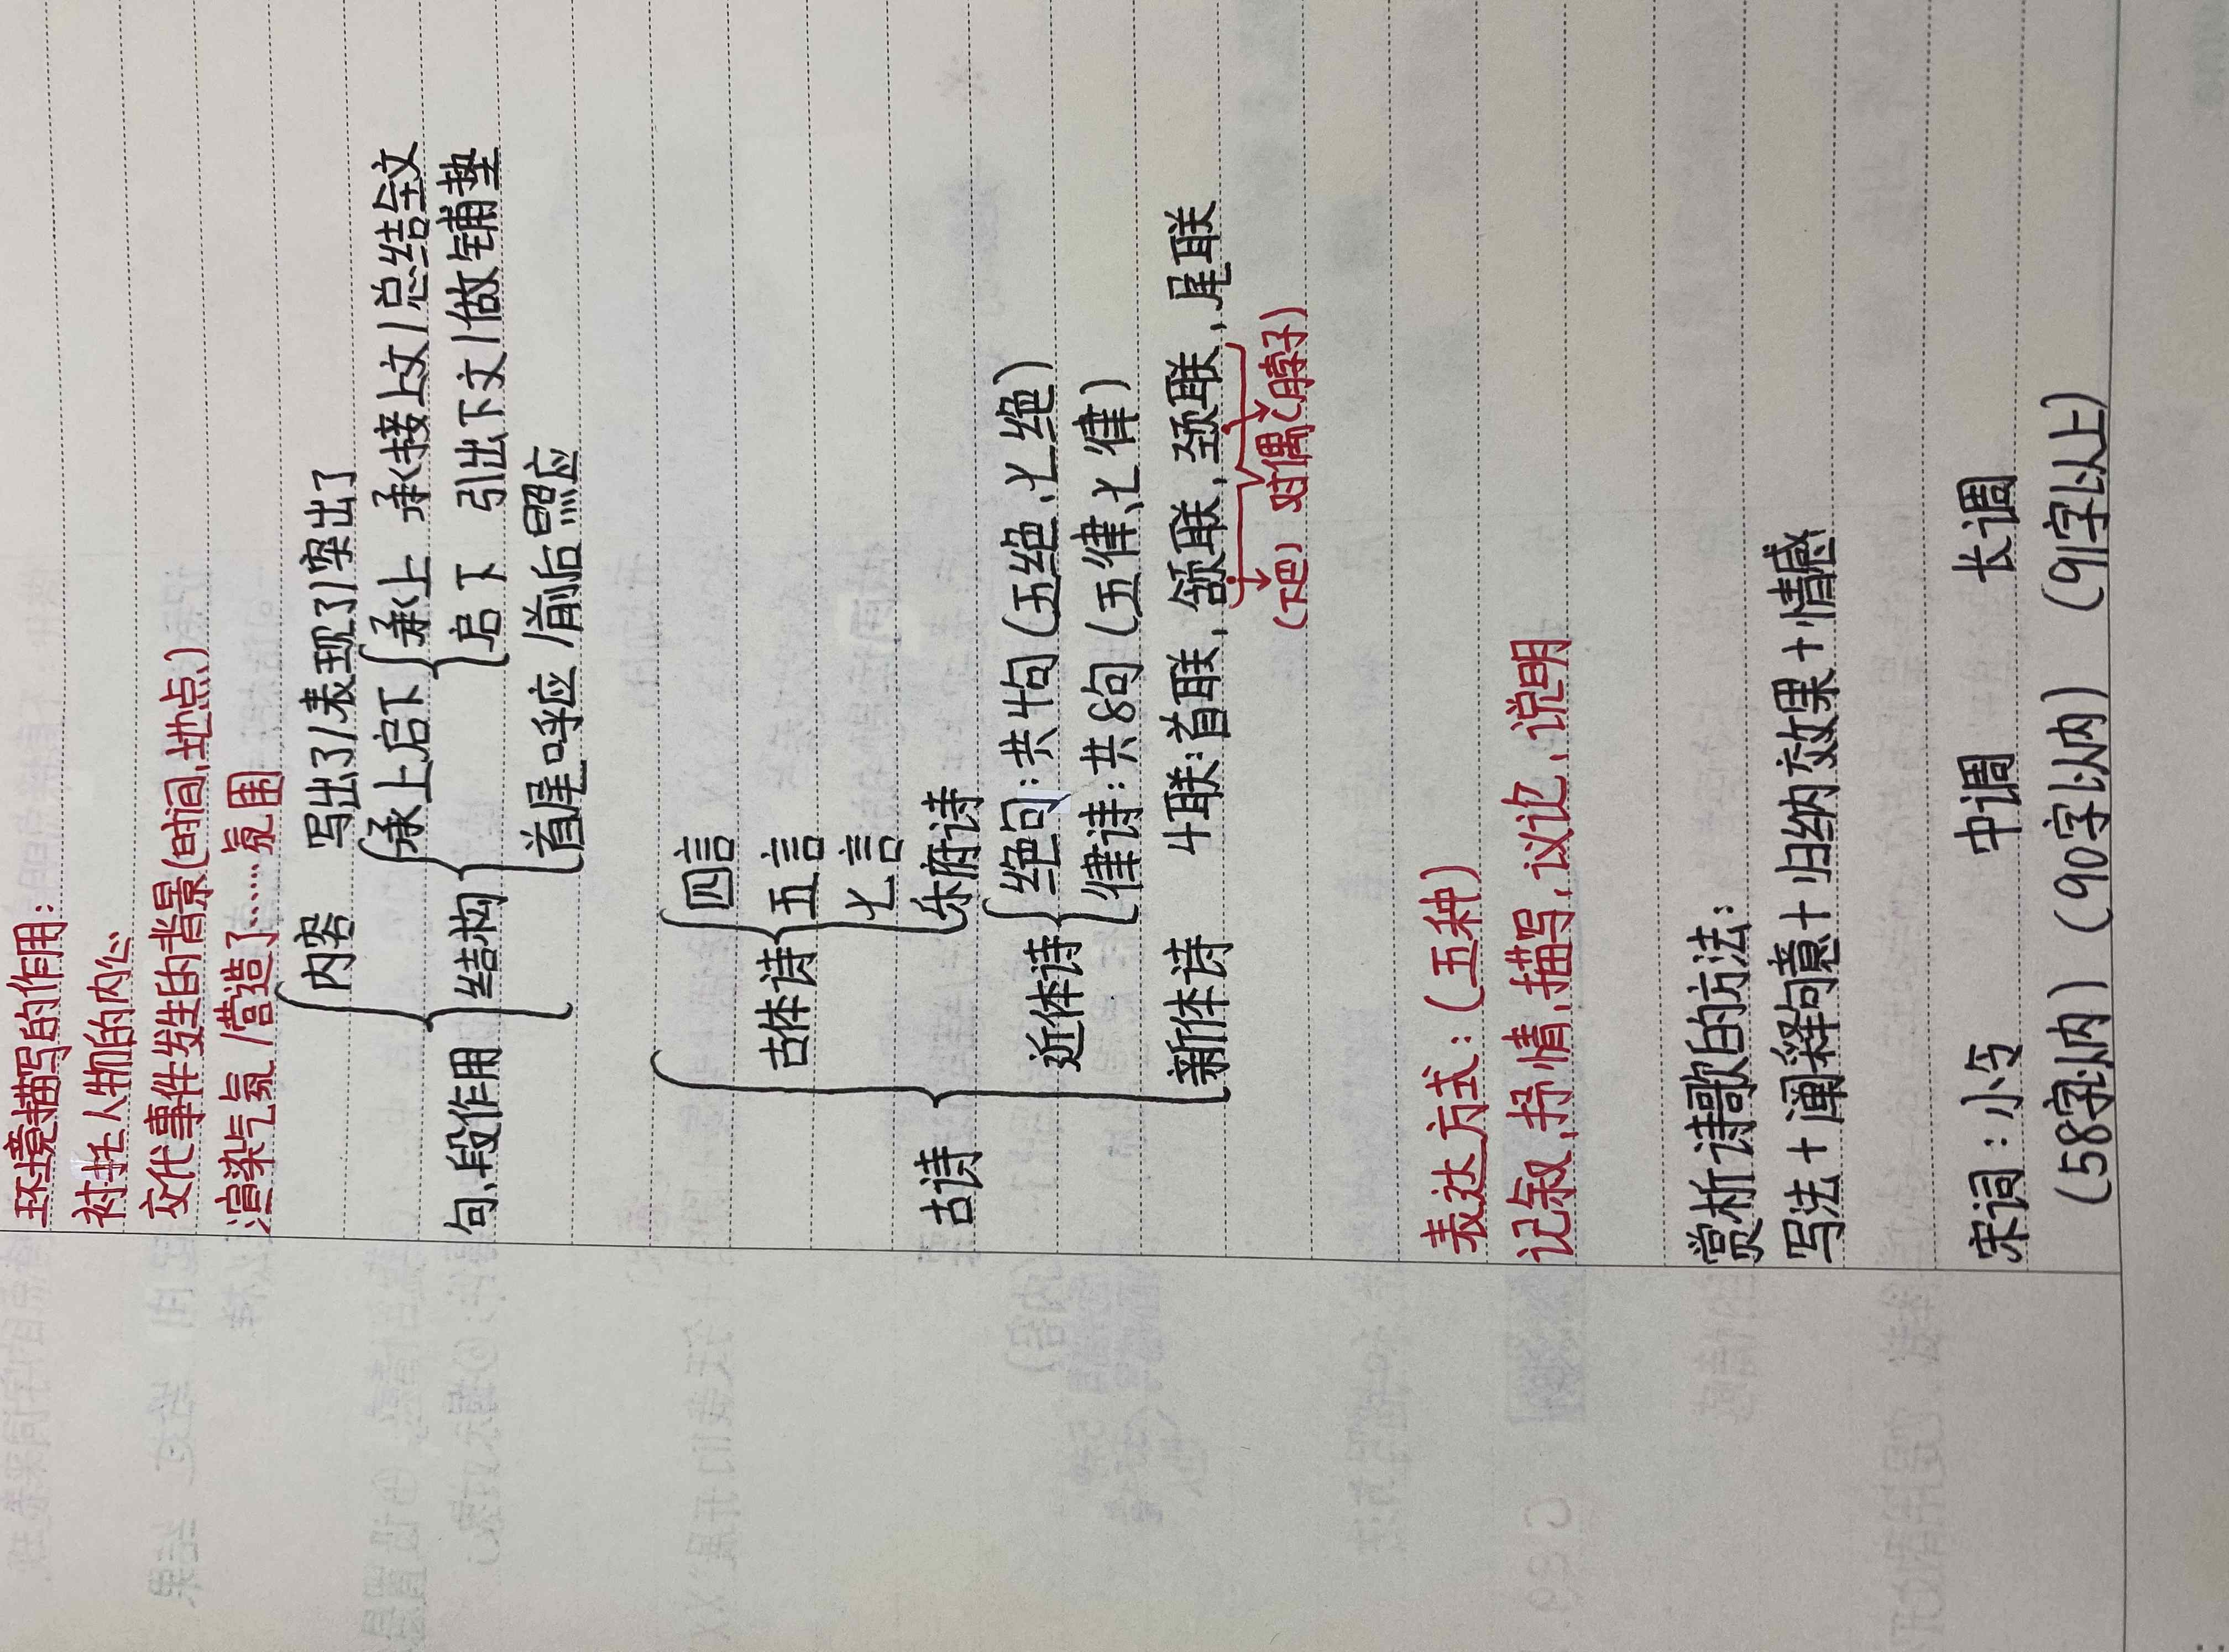 环境描写的作用:
衬托人物的内心
交代事件发生的背景(时间,地点)
渲染气氛/营造了……氛围
内容 写出了/表现了/突出了
承上启下 承上 承接上文/总结全文
句,段作用 结构 启下 引出下文/做铺垫
首尾呼应/前后照应
四言
古体诗 五言
七言
乐府诗
古诗 近体诗 绝句:共4句(五绝,七绝)
律诗:共8句(五律,七律)
新体诗 4联:首联,颔联,颈联,尾联
(下巴) 对偶(脖子)
表达方式:(五种)
记叙,抒情,描写,议论,说明
赏析诗歌的方法:
写法+阐释句意+归纳效果+情感
宋词:小令 中调 长调
(58字以内) (90字以内) (91字以上)